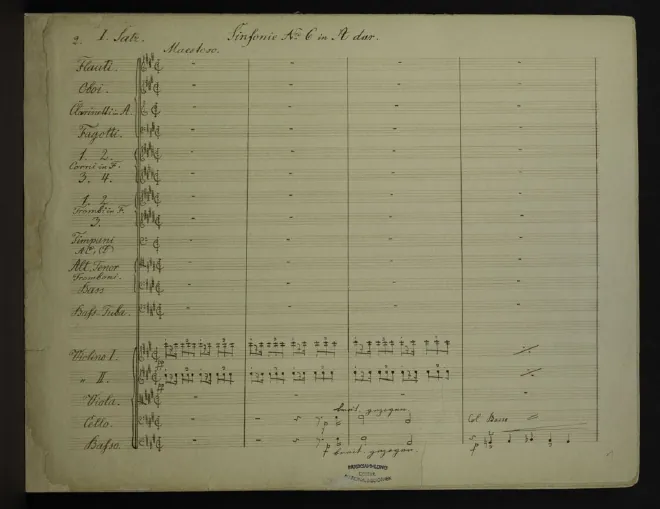 2. I. Satz. Sinfonie No. 6 in A dur.
Maestoso.
Flauti.
Oboi.
Clarinetti in A.
Fagotti.
1. 2.
Corni in F.
3. 4.
1. 2.
Trombe in F.
3.
Timpani
Alt. Tenor
Tromboni.
Bass
Bass-Tuba.
Violino I.
pp
" II.
pp
Viola.
breit gezogen
Cello.
p
Col Basso
Basso.
p
f breit gezogen.